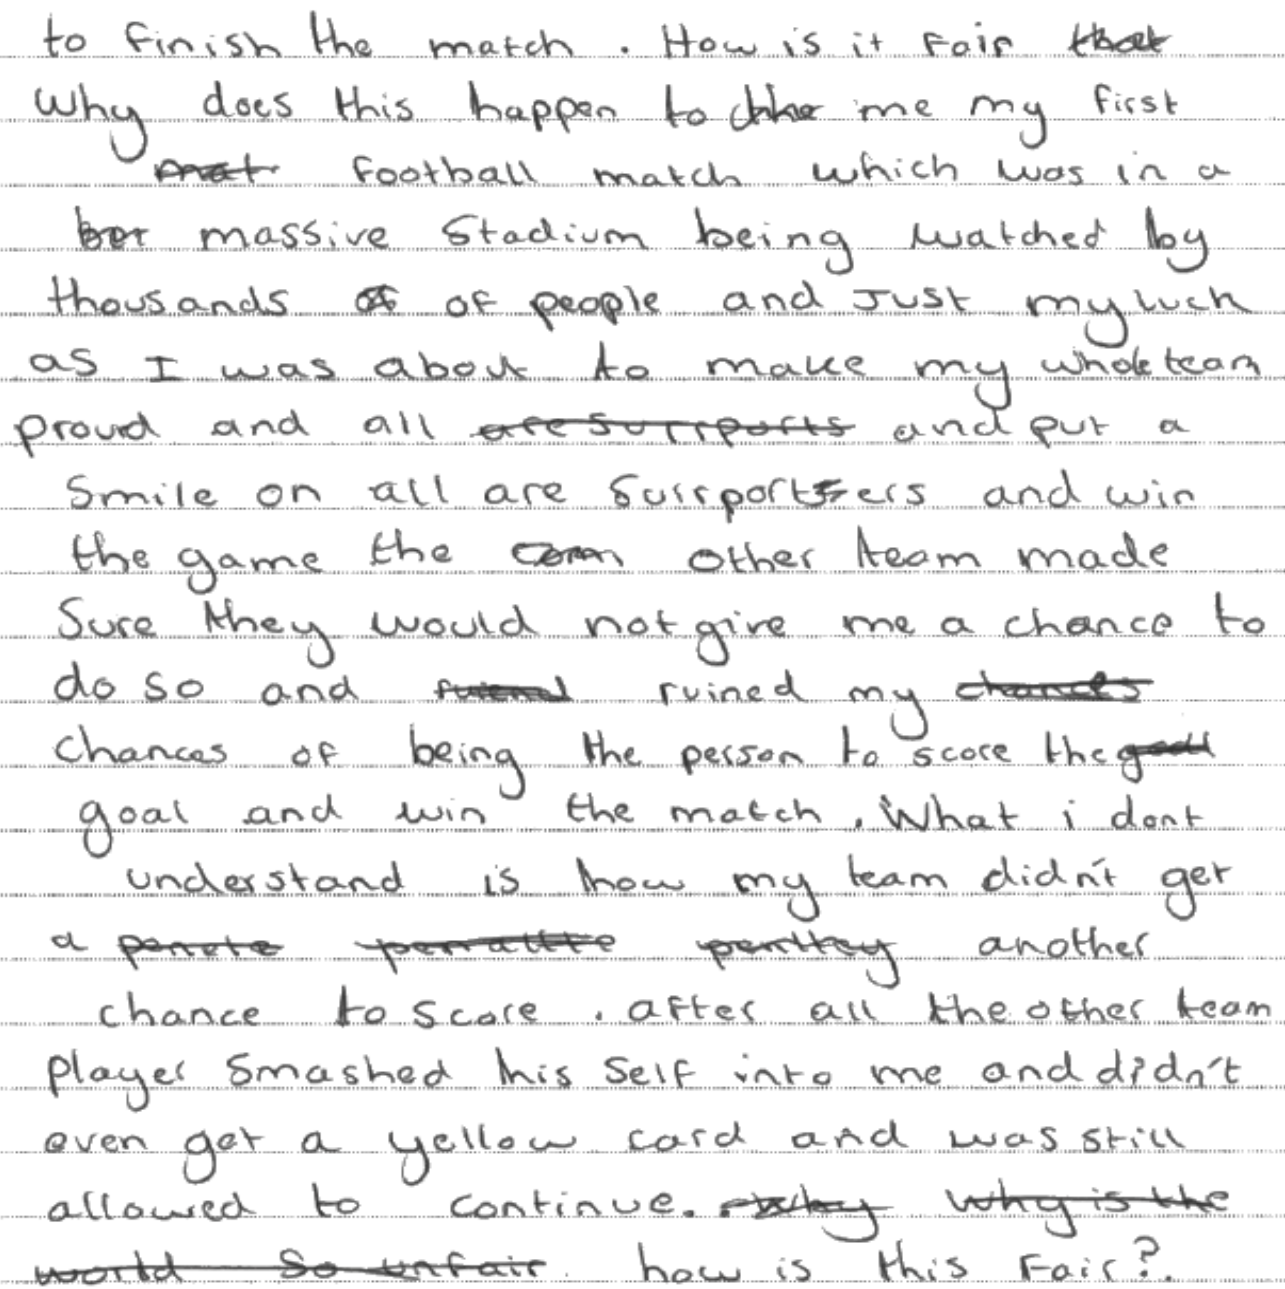 to finish the match. How is it fair ~~that~~
Why does this happen to ~~the~~ me my first
~~mat~~ football match which was in a
massive Stadium being watched by
thousands ~~of~~ of people and Just my luck
as I was about to make my whole team
proud and all ~~are surrports~~ and put a
Smile on all are surrporters and win
the game the other team made
Sure they would not give me a chance to
do so and ruined my ~~chances~~
Chances of being the person to score the ~~goal~~
goal and win the match. What i dont
understand is how my team didn't get
a another
chance to score. after all the other team
player Smashed his self into me and didn't
even get a yellow card and was still
allowed to continue. ~~why~~ ~~why is the~~
~~world so unfair~~ how is this Fair?.